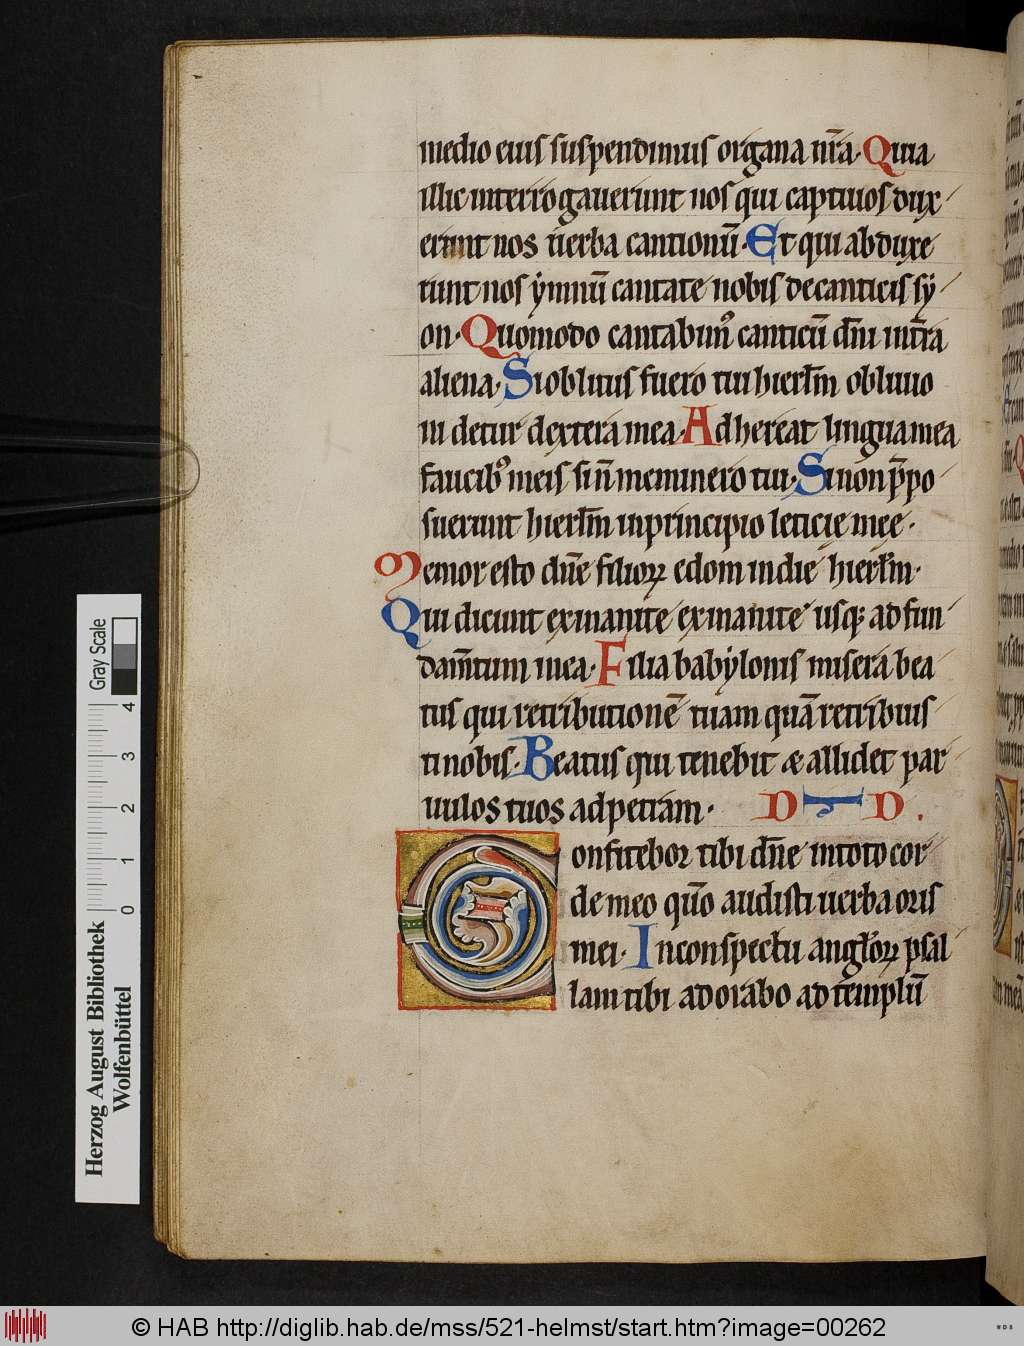 medio eius suspendimus organa nr̄a. Quia
illic interrogauerunt nos qui captiuos dux
erunt nos uerba cantionū. Et qui abduxe
runt nos ẏmnū cantate nobis de canticis sẏ
on. Quomodo cantabim᷒ canticū dn̄i in tr̄a
aliena. Si oblitus fuero tui hierl̄m obliuio
ni detur dextera mea. Adhereat lingua mea
faucib᷒ meis si n̄ meminero tui. Si non p̄po
suerunt hierl̄m in principio leticie mee.
Memor esto dn̄e filioꝝ edom in die hierl̄m.
Qui dicunt exinanite exinanite usq; ad fun
dam̄tum in ea. Filia babẏlonis misera bea
tus qui retributionē tuam quā retribuis
ti nobis. Beatus qui tenebit & allidet par
uulos tuos ad petram. D I D.
Confitebor tibi dn̄e in toto cor
de meo qm̄o audisti uerba oris
mei. In conspectu angl̄oꝝ psal
lam tibi adorabo ad templū
Gray Scale
0 1 2 3 4
Herzog August Bibliothek
Wolfenbüttel
© HAB http://diglib.hab.de/mss/521-helmst/start.htm?image=00262